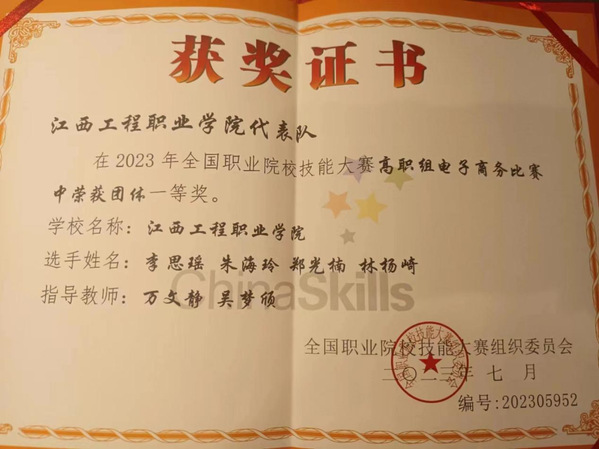 获奖证书
江西工程职业学院代表队
在2023年全国职业院校技能大赛高职组电子商务比赛
中荣获团体一等奖。
学校名称：江西工程职业学院
选手姓名：李思瑶 朱海玲 郑光楠 林杨崎
指导教师：万文静 吴梦颀
ChinaSkills
全国职业院校技能大赛组织委员会
二〇二三年七月
编号:202305952